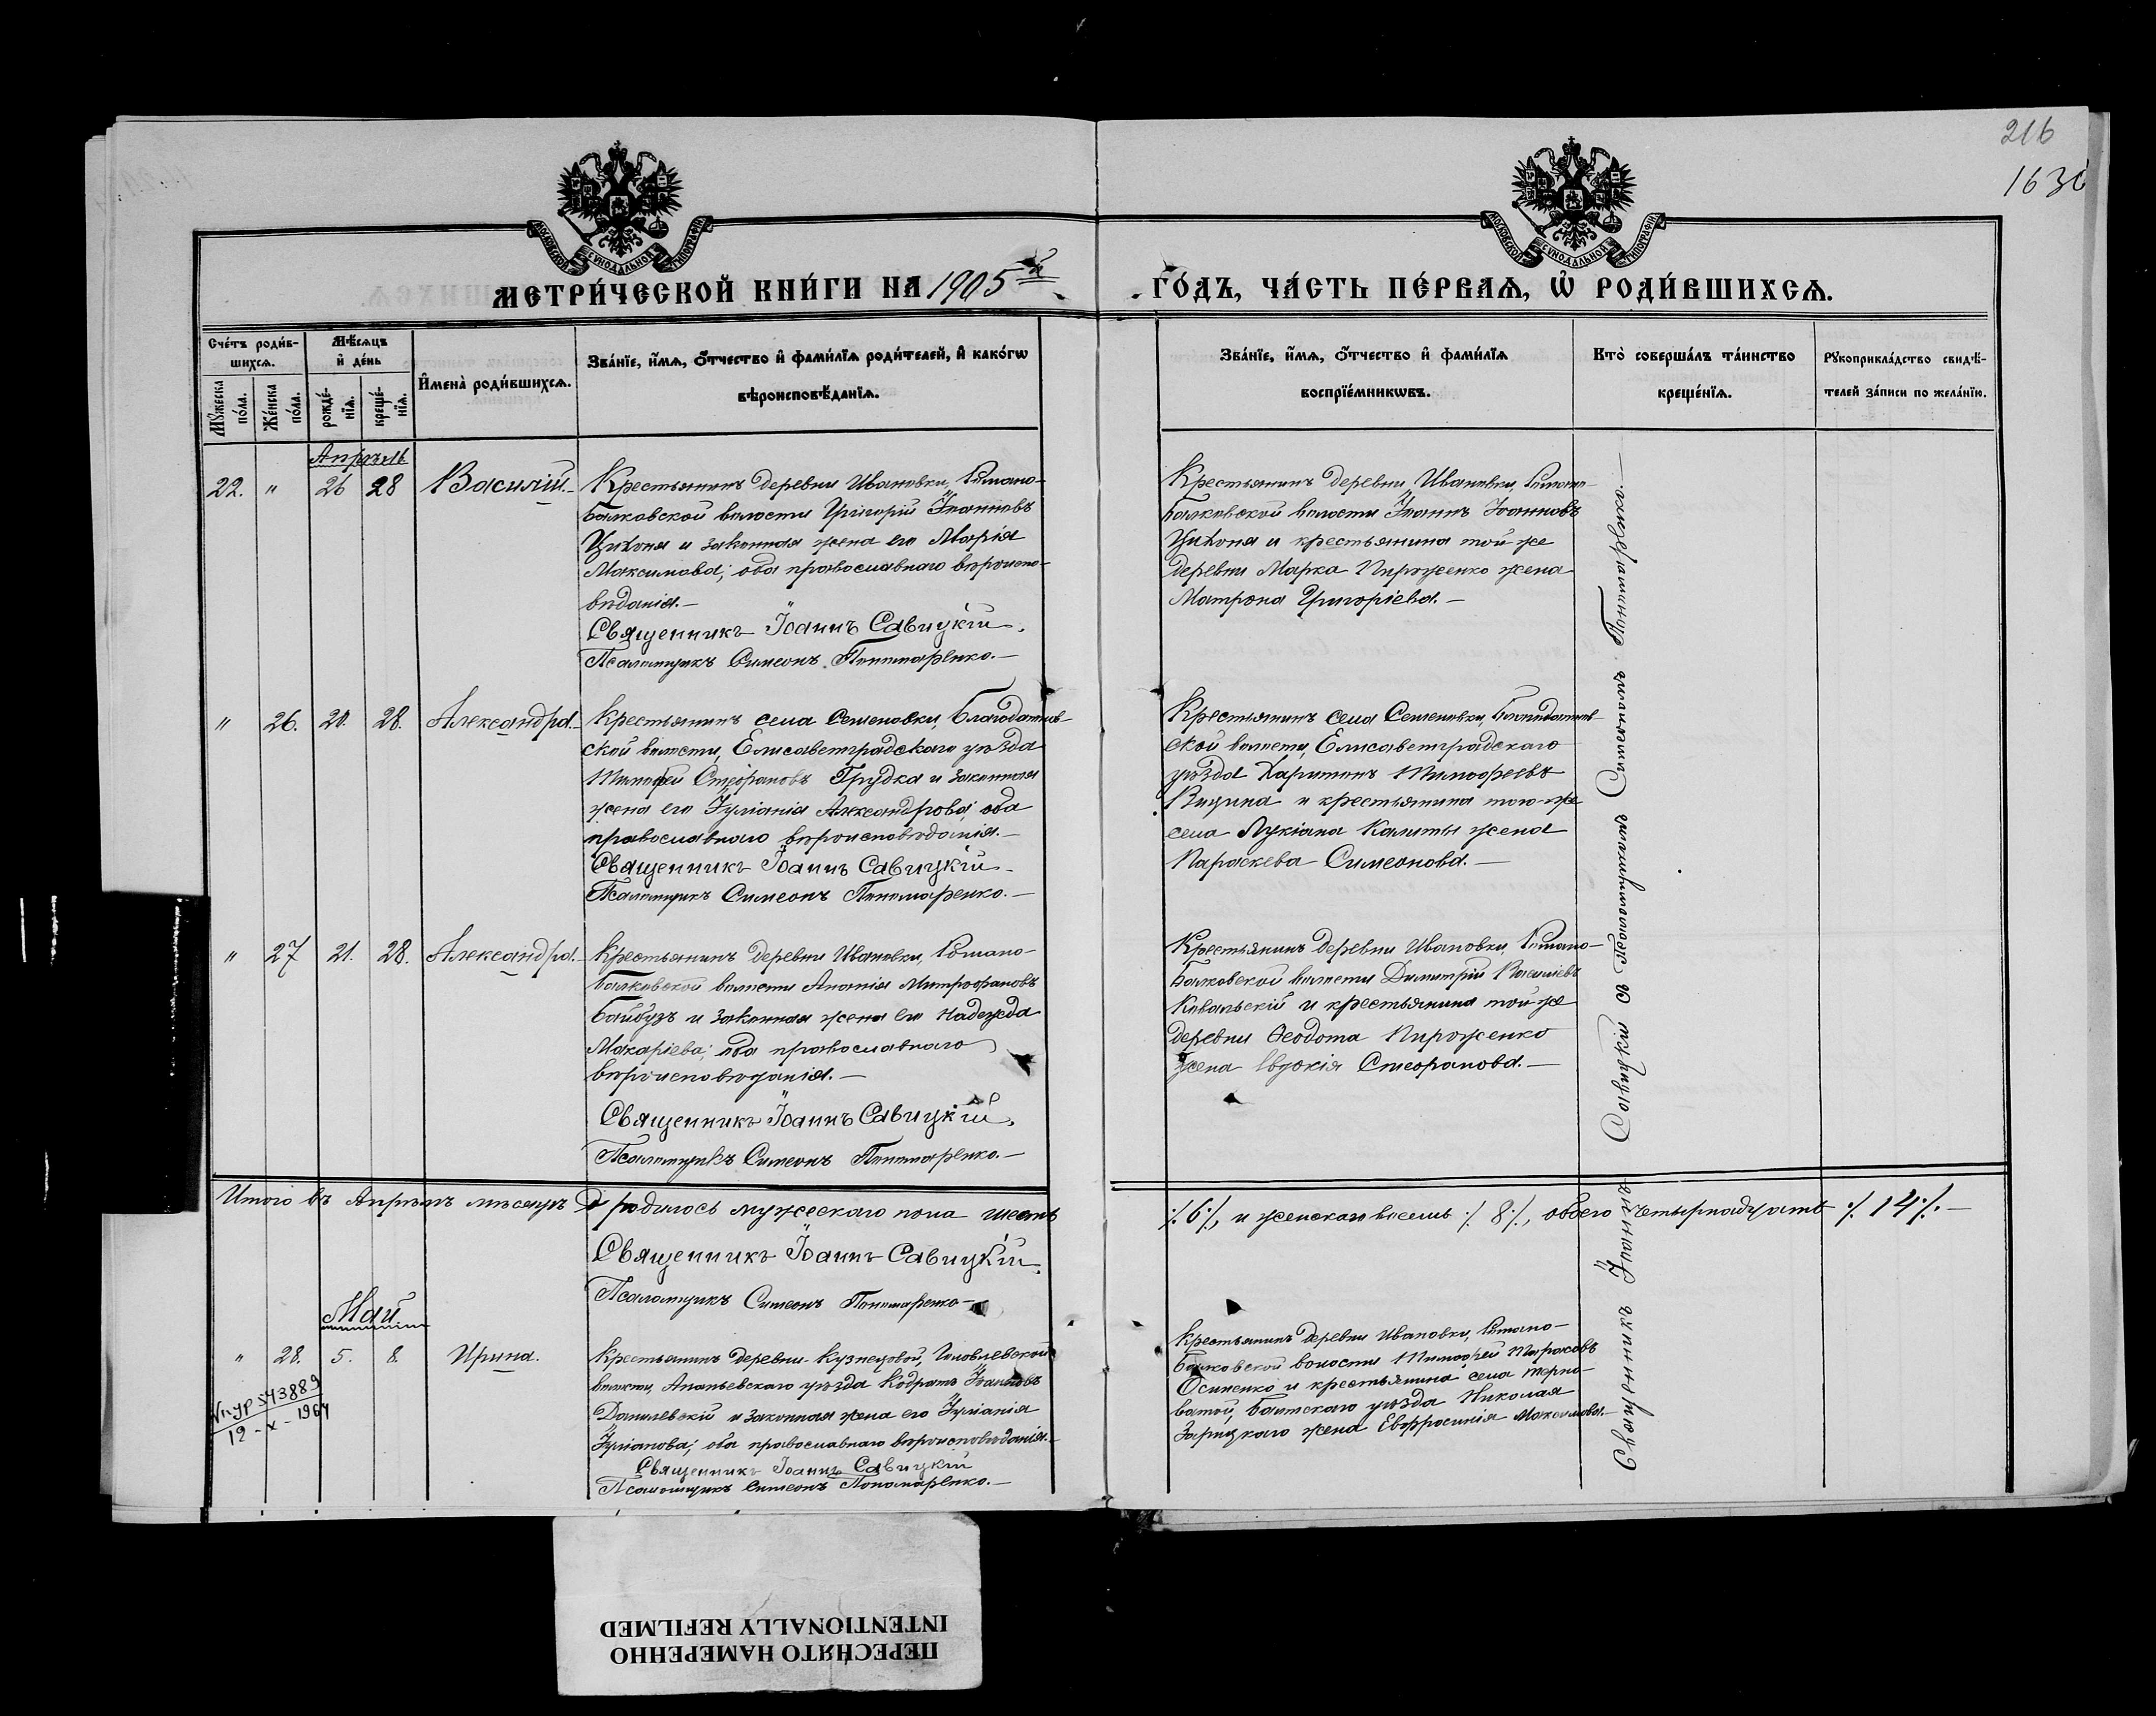 216
1630
МОСКОВСКОЙ СѴНОДАЛЬНОЙ ТИПОГРАФІИ
МОСКОВСКОЙ СѴНОДАЛЬНОЙ ТИПОГРАФІИ
МЕТРИ́ЧЕСКОЙ КНИ́ГИ НА 1905й
ГО́ДЪ, ЧА́СТЬ ПЕ́РВАѦ, Ѡ҆ РОДИ́ВШИХСѦ.
Сче́тъ роди́в-
шихсѧ.
Мꙋ́жеска по́ла.
Же́нска по́ла.
Мѣ́сѧцъ
и҆ де́нь
рожде́-
нїѧ.
креще́-
нїѧ.
И҆мена̀ роди́вшихсѧ.
Зва́нїе, и҆́мѧ, ѻ҆́тчество и҆ фами́лїѧ роди́телей, и҆ како́гѡ
вѣроисповѣ́данїѧ.
Зва́нїе, и҆́мѧ, ѻ҆́тчество и҆ фами́лїѧ
воспрїе́мникѡвъ.
Кто̀ соверша́лъ та́инство
креще́нїѧ.
Рꙋкоприкла́дство свидѣ́-
телей за́писи по жела́нїю.
Апрѣль
22. " 26 28 Василій.
Крестьянинъ деревни Ивановки, Романо-
балковской волости Григорій Іоанновъ
Цихоня и законная жена его Марія
Максимова; оба православнаго вѣроиспо-
вѣданія.—
Священникъ Іоаннъ Савицкій.
Псаломщикъ Симеонъ Пономаренко.—
Крестьянинъ деревни Ивановки, Романо-
балковской волости Іоаннъ Іоанновъ
Цихоня и крестьянина той же
деревни Марка Пироженко жена
Матрона Григоріева.—
" 26. 20. 28. Александра.
Крестьянинъ села Семеновки, Благодатнов-
ской волости, Елисаветградскаго уѣзда
Тимофей Стефановъ Грудка и законная
жена его Іуліанія Александрова; оба
православнаго вѣроисповѣданія.—
Священникъ Іоаннъ Савицкій.
Псаломщикъ Симеонъ Пономаренко.—
Крестьянинъ села Семеновки, Благодатнов-
ской волости, Елисаветградскаго
уѣзда Харитонъ Тимофеевъ
и крестьянина того-же
села Лукіана Калиты жена
Параскева Симеонова.—
" 27 21. 28. Александра.
Крестьянинъ деревни Ивановки, Романо-
балковской волости Ананія Митрофановъ
Байбузъ и законная жена его Надежда
Макаріева; оба православнаго
вѣроисповѣданія.—
Священникъ Іоаннъ Савицкій.
Псаломщикъ Симеонъ Пономаренко.—
Крестьянинъ деревни Ивановки, Романо-
балковской волости Димитрій Василіевъ
Ковальскій и крестьянина той же
деревни Ѳеодота Пироженко
жена Евдокія Стефанова.—
Священникъ Іоаннъ Савицкій съ псаломщикомъ Симеономъ Пономаренко.—
Итого въ Апрѣлѣ мѣсяцѣ родилось мужескаго пола шесть
:/.6:/., и женскаго восемь :/. 8:/., обоего четырнадцать :/. 14:/.—
Священникъ Іоаннъ Савицкій.
Псаломщикъ Симеонъ Пономаренко—
Май
" 28. 5. 8. Ирина.
543889
12-X-1964
Крестьянинъ деревни Кузнецовой,
волости, Ананьевскаго уѣзда Кодратъ Іоанновъ
Данилевскій и законная жена его Іуліанія
Іуліанова; оба православнаго вѣроисповѣданія.—
Священникъ Іоаннъ Савицкій
Псаломщикъ Симеонъ Пономаренко.—
Крестьянинъ деревни Ивановки, Романо-
балковской волости Тимофей Тарасовъ
Осипенко и крестьянина села Терно-
ватой, Балтскаго уѣзда Николая
Зарицкаго жена Евфросинія Максимова.—
ПЕРЕСНЯТО НАМЕРЕННО
INTENTIONALLY REFILMED